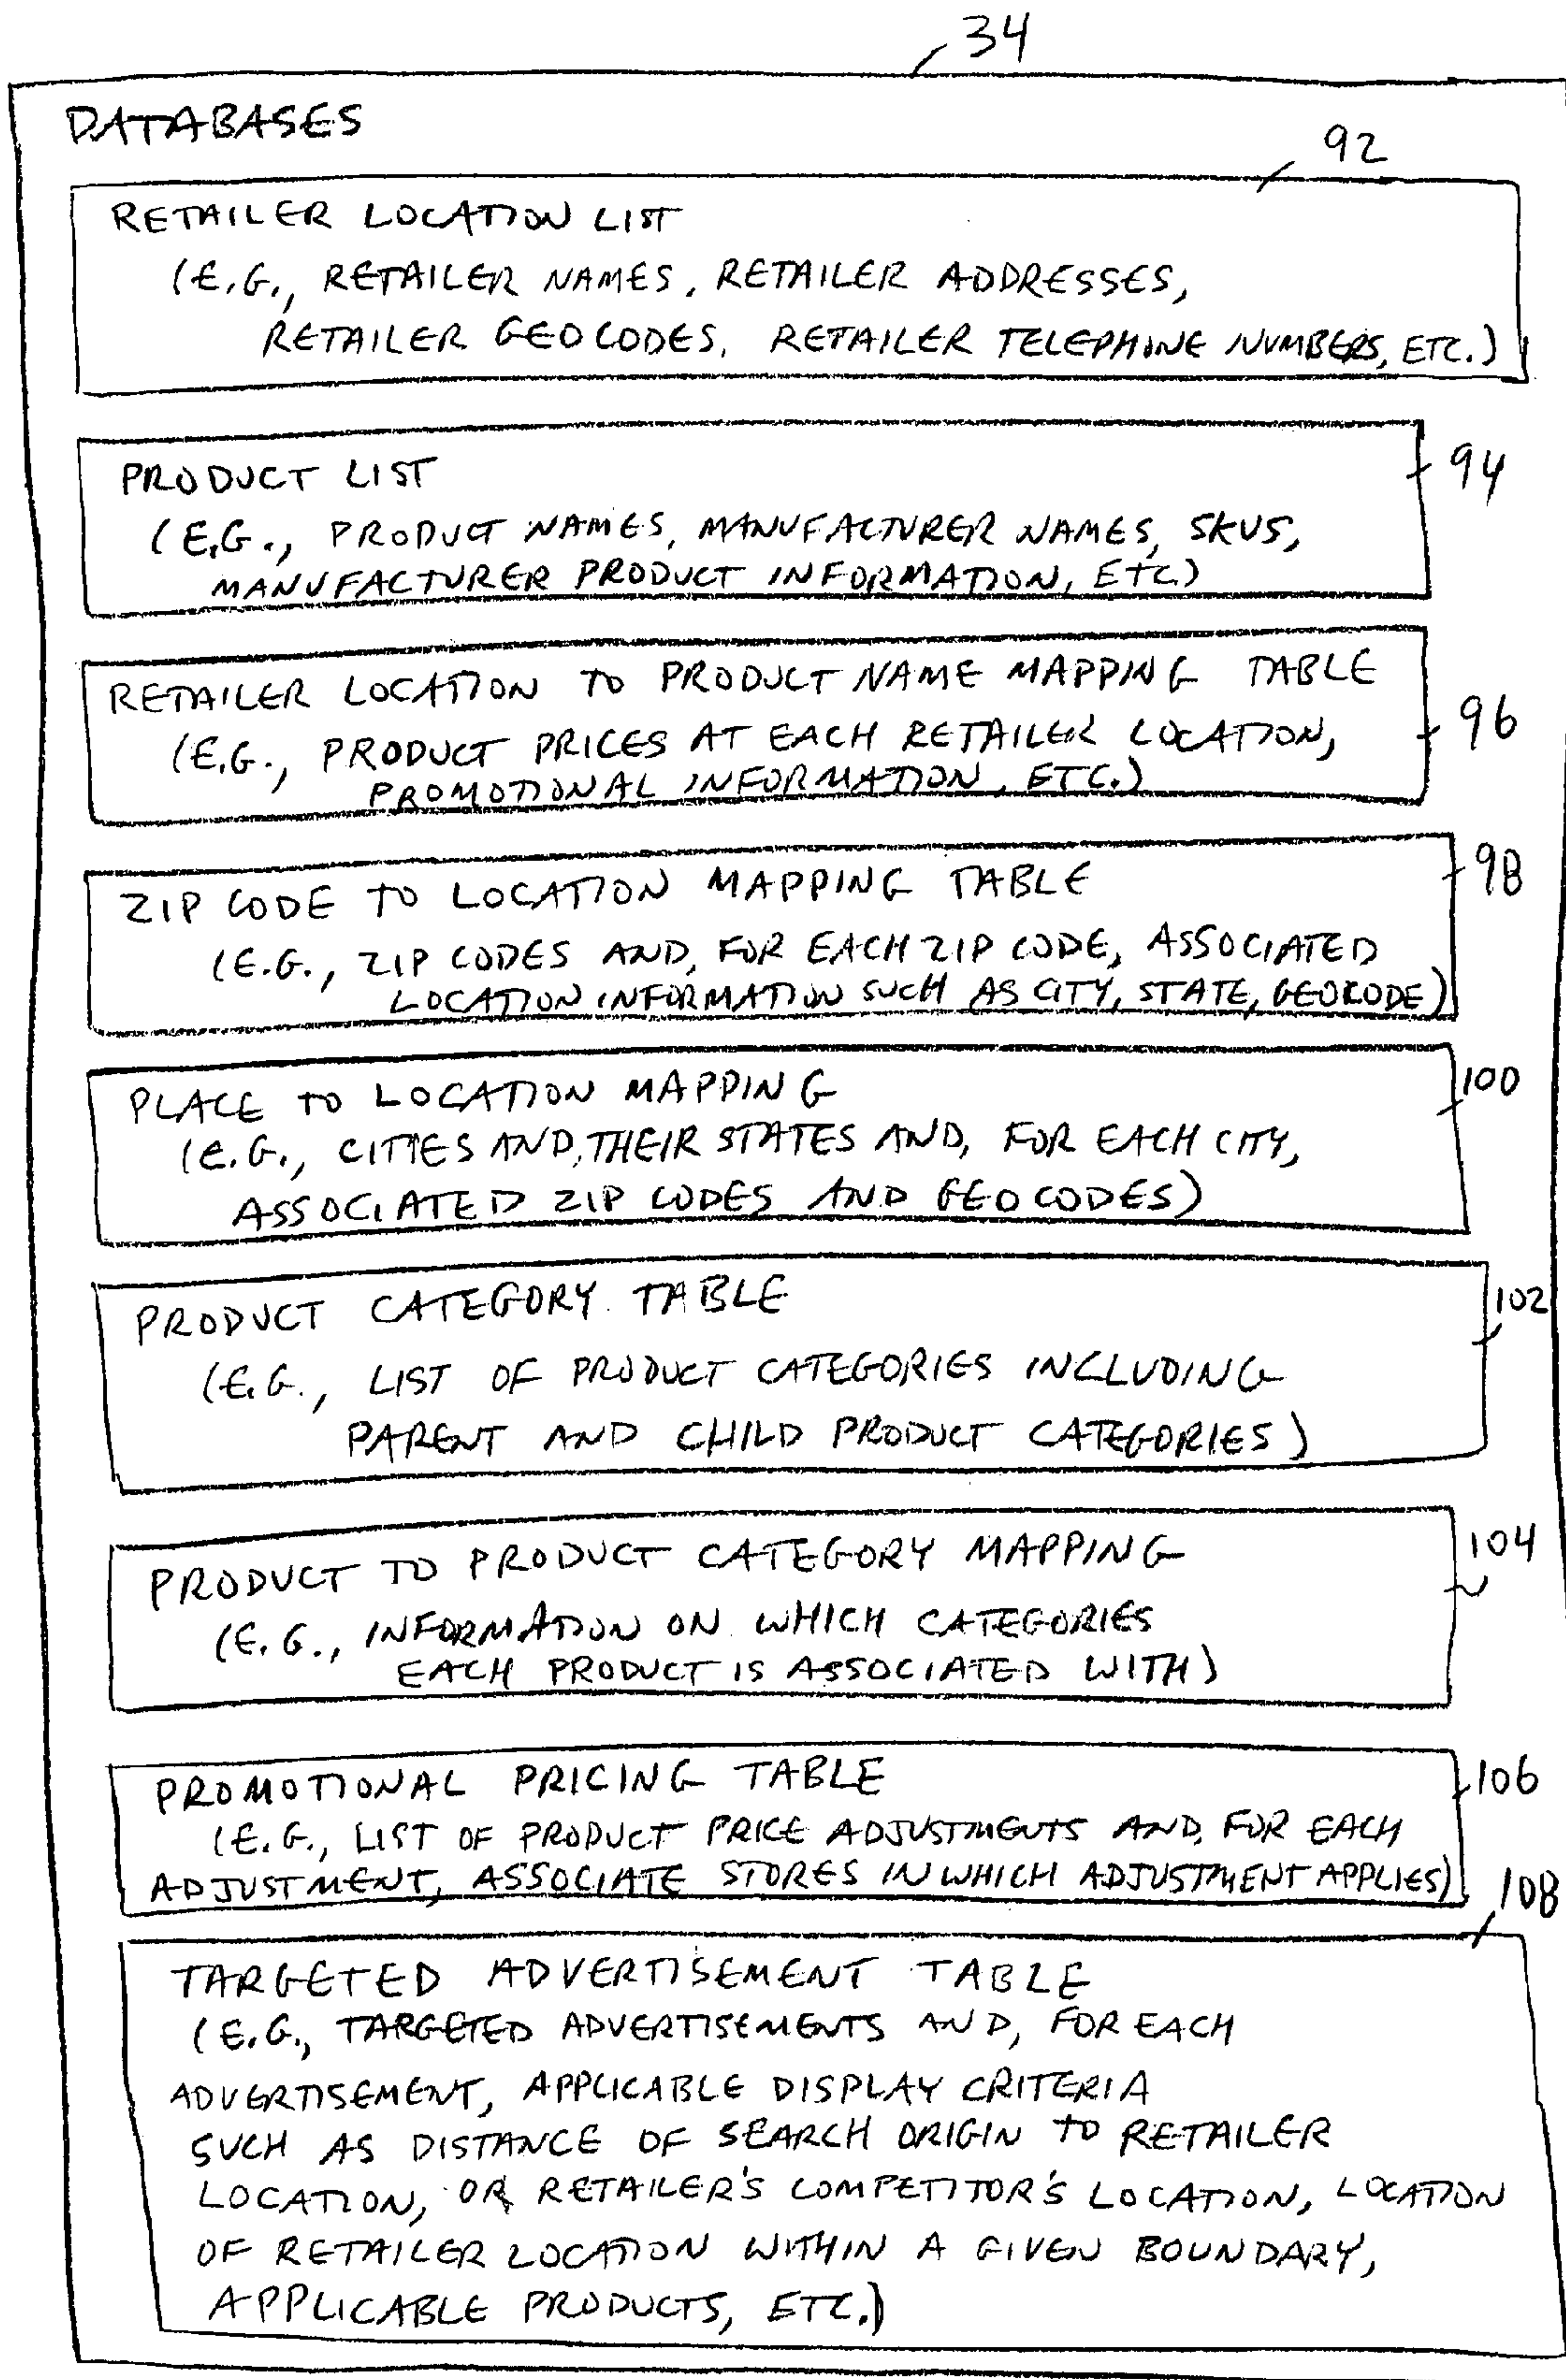 34
DATABASES
92
RETAILER LOCATION LIST
(E.G., RETAILER NAMES, RETAILER ADDRESSES,
RETAILER GEOCODES, RETAILER TELEPHONE NUMBERS, ETC.)
PRODUCT LIST
94
(E.G., PRODUCT NAMES, MANUFACTURER NAMES, SKUS,
MANUFACTURER PRODUCT INFORMATION, ETC.)
RETAILER LOCATION TO PRODUCT NAME MAPPING TABLE
96
(E.G., PRODUCT PRICES AT EACH RETAILER LOCATION,
PROMOTIONAL INFORMATION, ETC.)
ZIP CODE TO LOCATION MAPPING TABLE
98
(E.G., ZIP CODES AND, FOR EACH ZIP CODE, ASSOCIATED
LOCATION INFORMATION SUCH AS CITY, STATE, GEOCODE)
PLACE TO LOCATION MAPPING
100
(E.G., CITIES AND, THEIR STATES AND, FOR EACH CITY,
ASSOCIATED ZIP CODES AND GEOCODES)
PRODUCT CATEGORY TABLE
102
(E.G., LIST OF PRODUCT CATEGORIES INCLUDING
PARENT AND CHILD PRODUCT CATEGORIES)
PRODUCT TO PRODUCT CATEGORY MAPPING
104
(E.G., INFORMATION ON WHICH CATEGORIES
EACH PRODUCT IS ASSOCIATED WITH)
PROMOTIONAL PRICING TABLE
106
(E.G., LIST OF PRODUCT PRICE ADJUSTMENTS AND, FOR EACH
ADJUSTMENT, ASSOCIATE STORES IN WHICH ADJUSTMENT APPLIES)
108
TARGETED ADVERTISEMENT TABLE
(E.G., TARGETED ADVERTISEMENTS AND, FOR EACH
ADVERTISEMENT, APPLICABLE DISPLAY CRITERIA
SUCH AS DISTANCE OF SEARCH ORIGIN TO RETAILER
LOCATION, OR RETAILER'S COMPETITOR'S LOCATION, LOCATION
OF RETAILER LOCATION WITHIN A GIVEN BOUNDARY,
APPLICABLE PRODUCTS, ETC.)